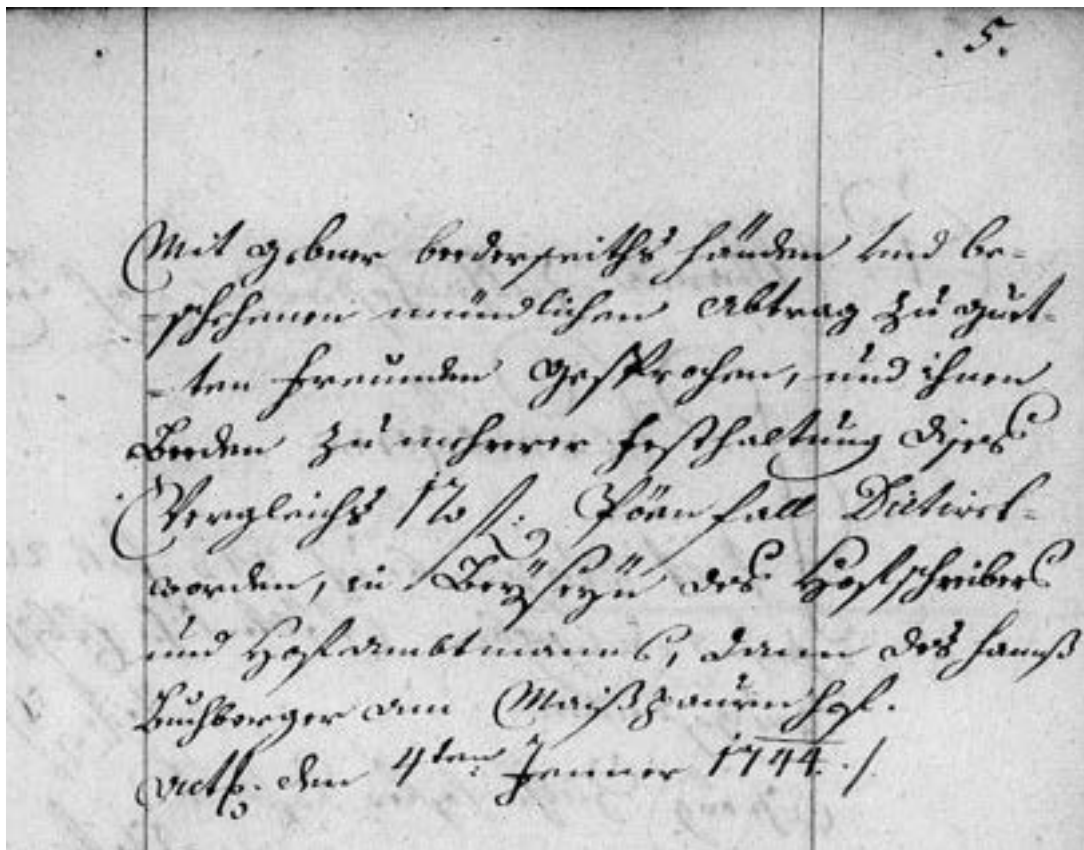 .5.
Mit gebner beederseiths händen und be-
-schehenen mündlichen Abtrag zu guet-
-ten freunden gesprochen, und ihnen
Beeden zu mehrerer festhaltung dises
Vergleichs Pöenfall Dictiret
worden, in Beÿseÿn des Hofschreibers
und Hofambtmanns, dann des hannß
Buchberger am hof.
Act. den 4ten Jenner 1744./.